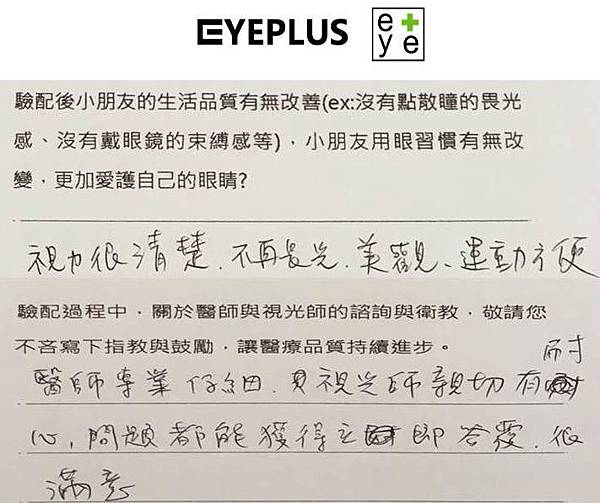 EYEPLUS eye+e
驗配後小朋友的生活品質有無改善(ex:沒有點散瞳的畏光
感、沒有戴眼鏡的束縛感等)，小朋友用眼習慣有無改
變，更加愛護自己的眼睛?
視力很清楚、不再畏光、美觀、運動方便
驗配過程中，關於醫師與視光師的諮詢與衛教，敬請您
不吝寫下指教與鼓勵，讓醫療品質持續進步。
醫師專業仔細、視光師親切有耐
心，問題都能獲得立即答覆、很
滿意